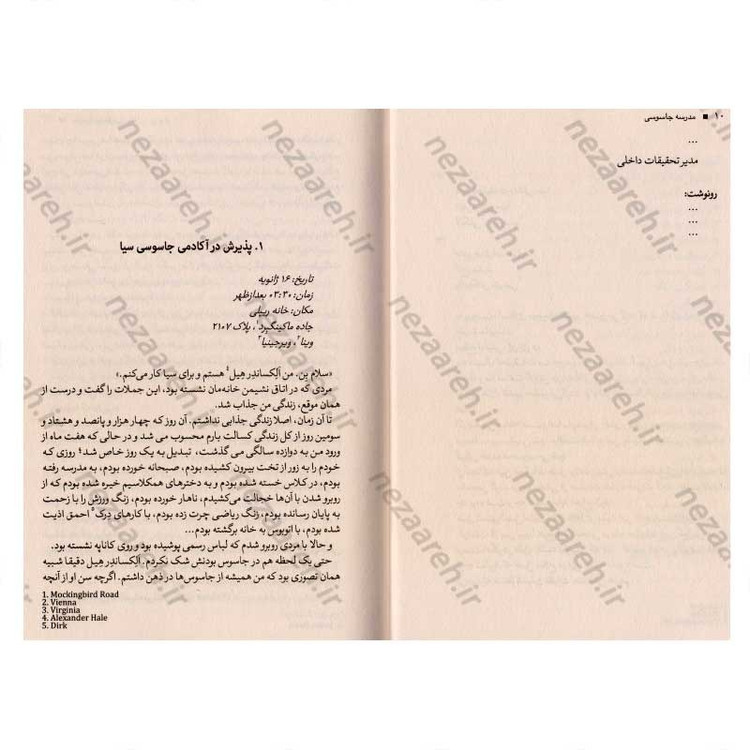 ۱۰ ■ مدرسه جاسوسی
...
مدیر تحقیقات داخلی
رونوشت:
...
...
...
۱. پذیرش در آکادمی جاسوسی سیا
تاریخ: ۱۶ ژانویه
زمان: ۰۲:۳۰ بعدازظهر
مکان: خانه ریپلی
جاده ماکینگبرد۱، پلاک ۲۱۰۷
وینا۲، ویرجینیا۳
«سلام بِن. من اَلِکساندِر هِیل۴ هستم و برای سیا کار می‌کنم.»
مردی که در اتاق نشیمن خانه‌مان نشسته بود، این جملات را گفت و درست از
همان موقع، زندگی من جذاب شد.
تا آن زمان، اصلا زندگی جذابی نداشتم. آن روز که چهار هزار و پانصد و هشتاد و
سومین روز از کل زندگی کسالت بارم محسوب می شد و در حالی که هفت ماه از
ورود من به دوازده سالگی می گذشت، تبدیل به یک روز خاص شد؛ روزی که
خودم را به زور از تخت بیرون کشیده بودم، صبحانه خورده بودم، به مدرسه رفته
بودم، در کلاس خسته شده بودم و به دخترهای همکلاسیم خیره شده بودم که از
روبرو شدن با آن‌ها خجالت می‌کشیدم، ناهار خورده بودم، زنگ ورزش را با زحمت
به پایان رسانده بودم، زنگ ریاضی چرت زده بودم، با کارهای دِرک۵ احمق اذیت
شده بودم، با اتوبوس به خانه برگشته بودم...
و حالا با مردی روبرو شدم که لباس رسمی پوشیده بود و روی کاناپه نشسته بود.
حتی یک لحظه هم در جاسوس بودنش شک نکردم. اَلِکساندِر هِیل دقیقا شبیه
همان تصوری بود که من همیشه از جاسوس‌ها در ذهن داشتم. اگرچه سن او از آنچه
1. Mockingbird Road
2. Vienna
3. Virginia
4. Alexander Hale
5. Dirk
nezaareh.ir
nezaareh.ir
nezaareh.ir
nezaareh.ir
nezaareh.ir
nezaareh.ir
nezaareh.ir
nezaareh.ir
nezaareh.ir
nezaareh.ir
nezaareh.ir
nezaareh.ir